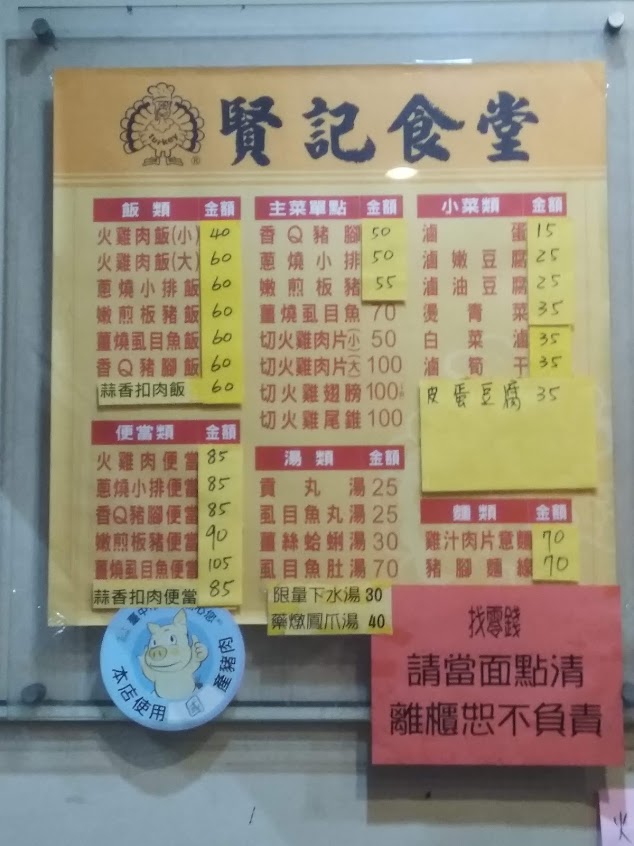 賢記食堂
飯類 金額
火雞肉飯(小) 40
火雞肉飯(大) 60
蔥燒小排飯 60
嫩煎板豬飯 60
薑燒虱目魚 60
香Q豬腳飯 60
蒜香扣肉飯 60
便當類 金額
火雞肉便當 85
蔥燒小排便當 85
香Q豬腳便當 85
嫩煎板豬便當 90
薑燒虱目魚便當 105
蒜香扣肉便當 85
主菜單點 金額
香Q豬腳 50
蔥燒小排 50
嫩煎板豬 55
薑燒虱目魚 70
切火雞肉片(小) 50
切火雞肉片(大) 100
切火雞翅膀 100
切火雞尾錐 100
湯類 金額
貢丸湯 25
虱目魚丸湯 25
薑絲蛤蜊湯 30
虱目魚肚湯 70
限量下水湯 30
藥燉鳳爪湯 40
小菜類 金額
滷蛋 15
滷嫩豆腐 25
滷油豆腐 25
燙青菜 35
白菜滷 35
滷筍干 35
皮蛋豆腐 35
麵類 金額
雞汁肉片意麵 70
豬腳麵線 70
找零錢
請當面點清
離櫃恕不負責
本店使用
豬肉
火